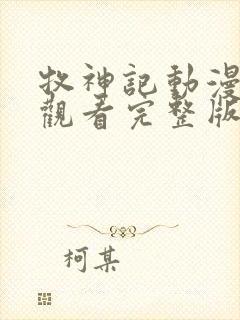 牧神記動漫
觀看完整版
柯某